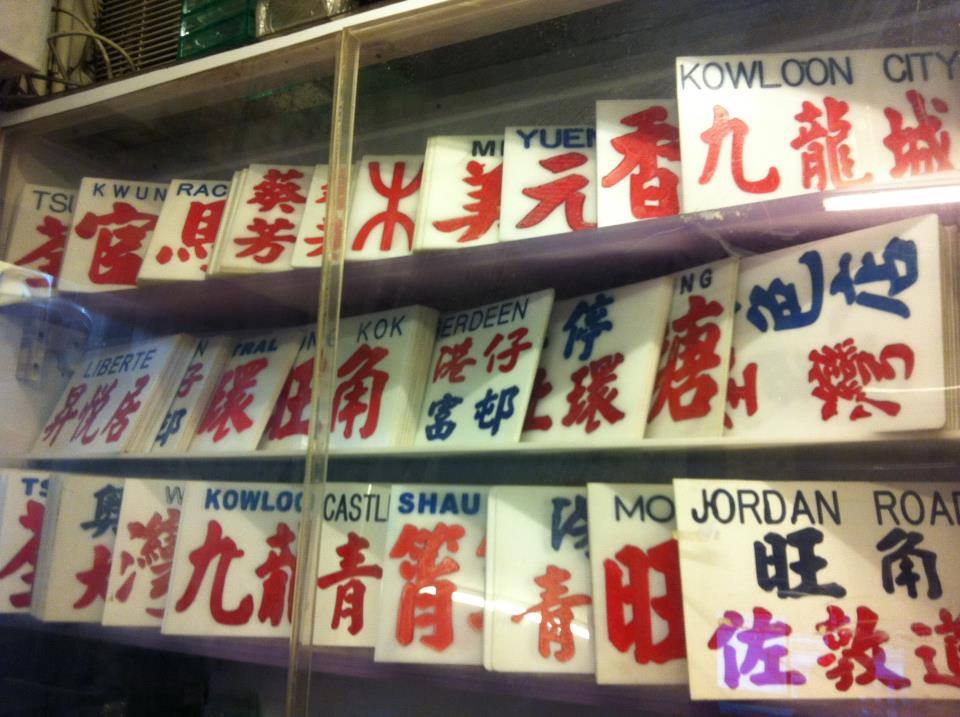 KWUN
官
RAC
馬
葵
芳
木
美
YUEN
元
香
KOWLOON CITY
九龍城
LIBERTE
昇悅居
仔
邨
TRAL
環
旺
KOK
角
ERDEEN
港仔
富邨
停
環
NG
唐
色店
灣
奧
灣
KOWLOO
九龍
CASTL
青
SHAU
筲
青
MO
旺
JORDAN ROAD
旺角
佐敦道